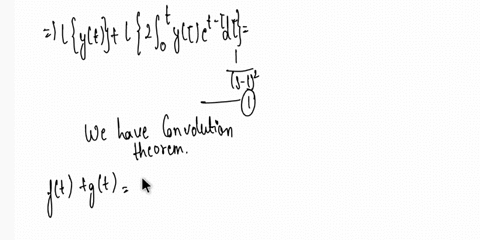 => L{y(t)} + L{2∫₀ᵗ y(τ) e^{t-τ} dτ} =
1/(s-1)²
—— ①
We have Convolution
theorem.
f(t) + g(t) =